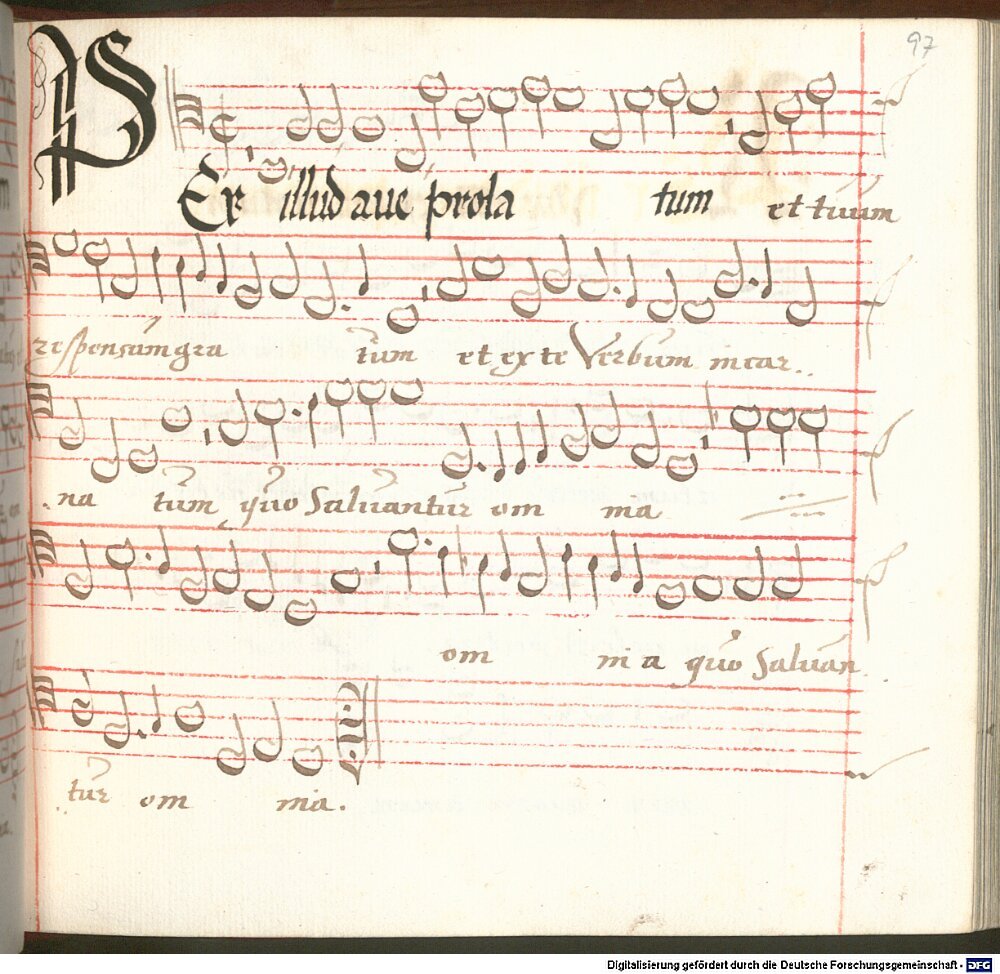 97
Per illud aue prola tum et tuum
responsum gra tum et ex te Verbum incar..
na tum quo Saluantur om ma
om m a quo Saluan
tur om ma.
Digitalisierung gefördert durch die Deutsche Forschungsgemeinschaft - DFG